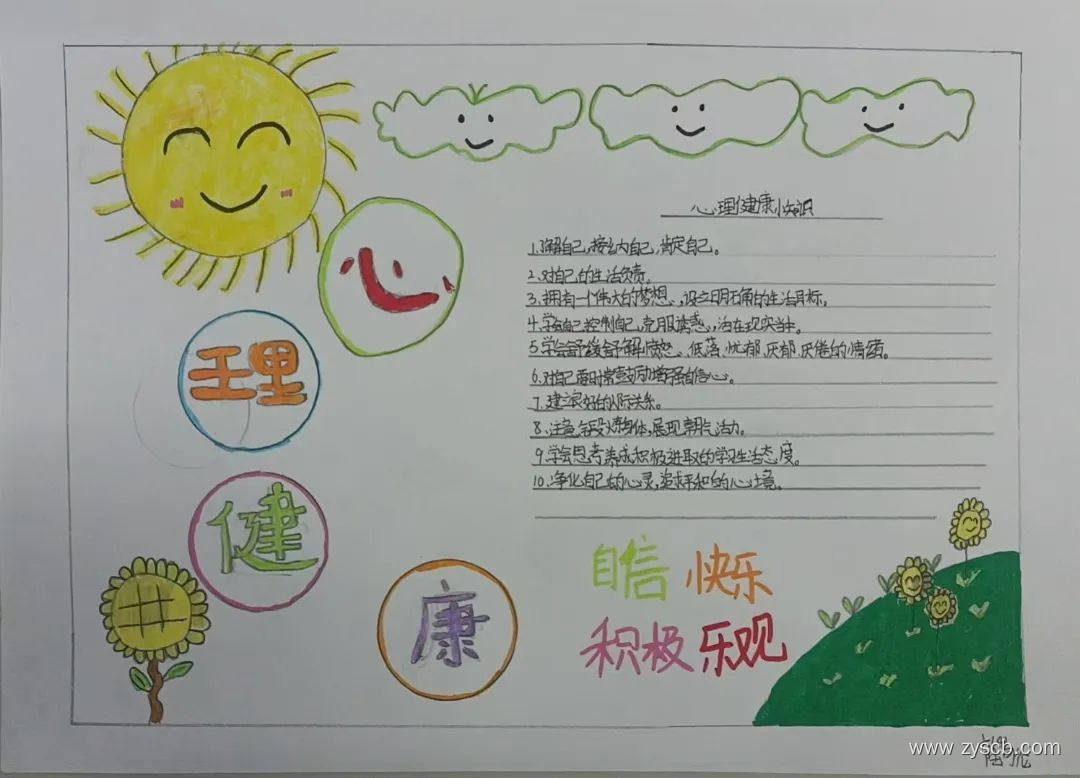 心
理
健
康
心理健康小知识
1.了解自己,接纳自己,肯定自己。
2.对自己的生活负责。
3.拥有一个伟大的梦想、设立明确的生活目标。
4.学会自己控制自己,克服诱惑,活在现实当中。
5.学会舒缓舒解愤怒、低落、忧郁、厌郁、厌倦的情绪。
6.对自己要时常鼓励增强自信心。
7.建立良好的人际关系。
8.注意锻炼身体,展现朝气活力。
9.学会思考养成积极进取的学习生活态度。
10.净化自己的心灵,追求平和的心境。
自信 快乐
积极 乐观
www.zyscb.com